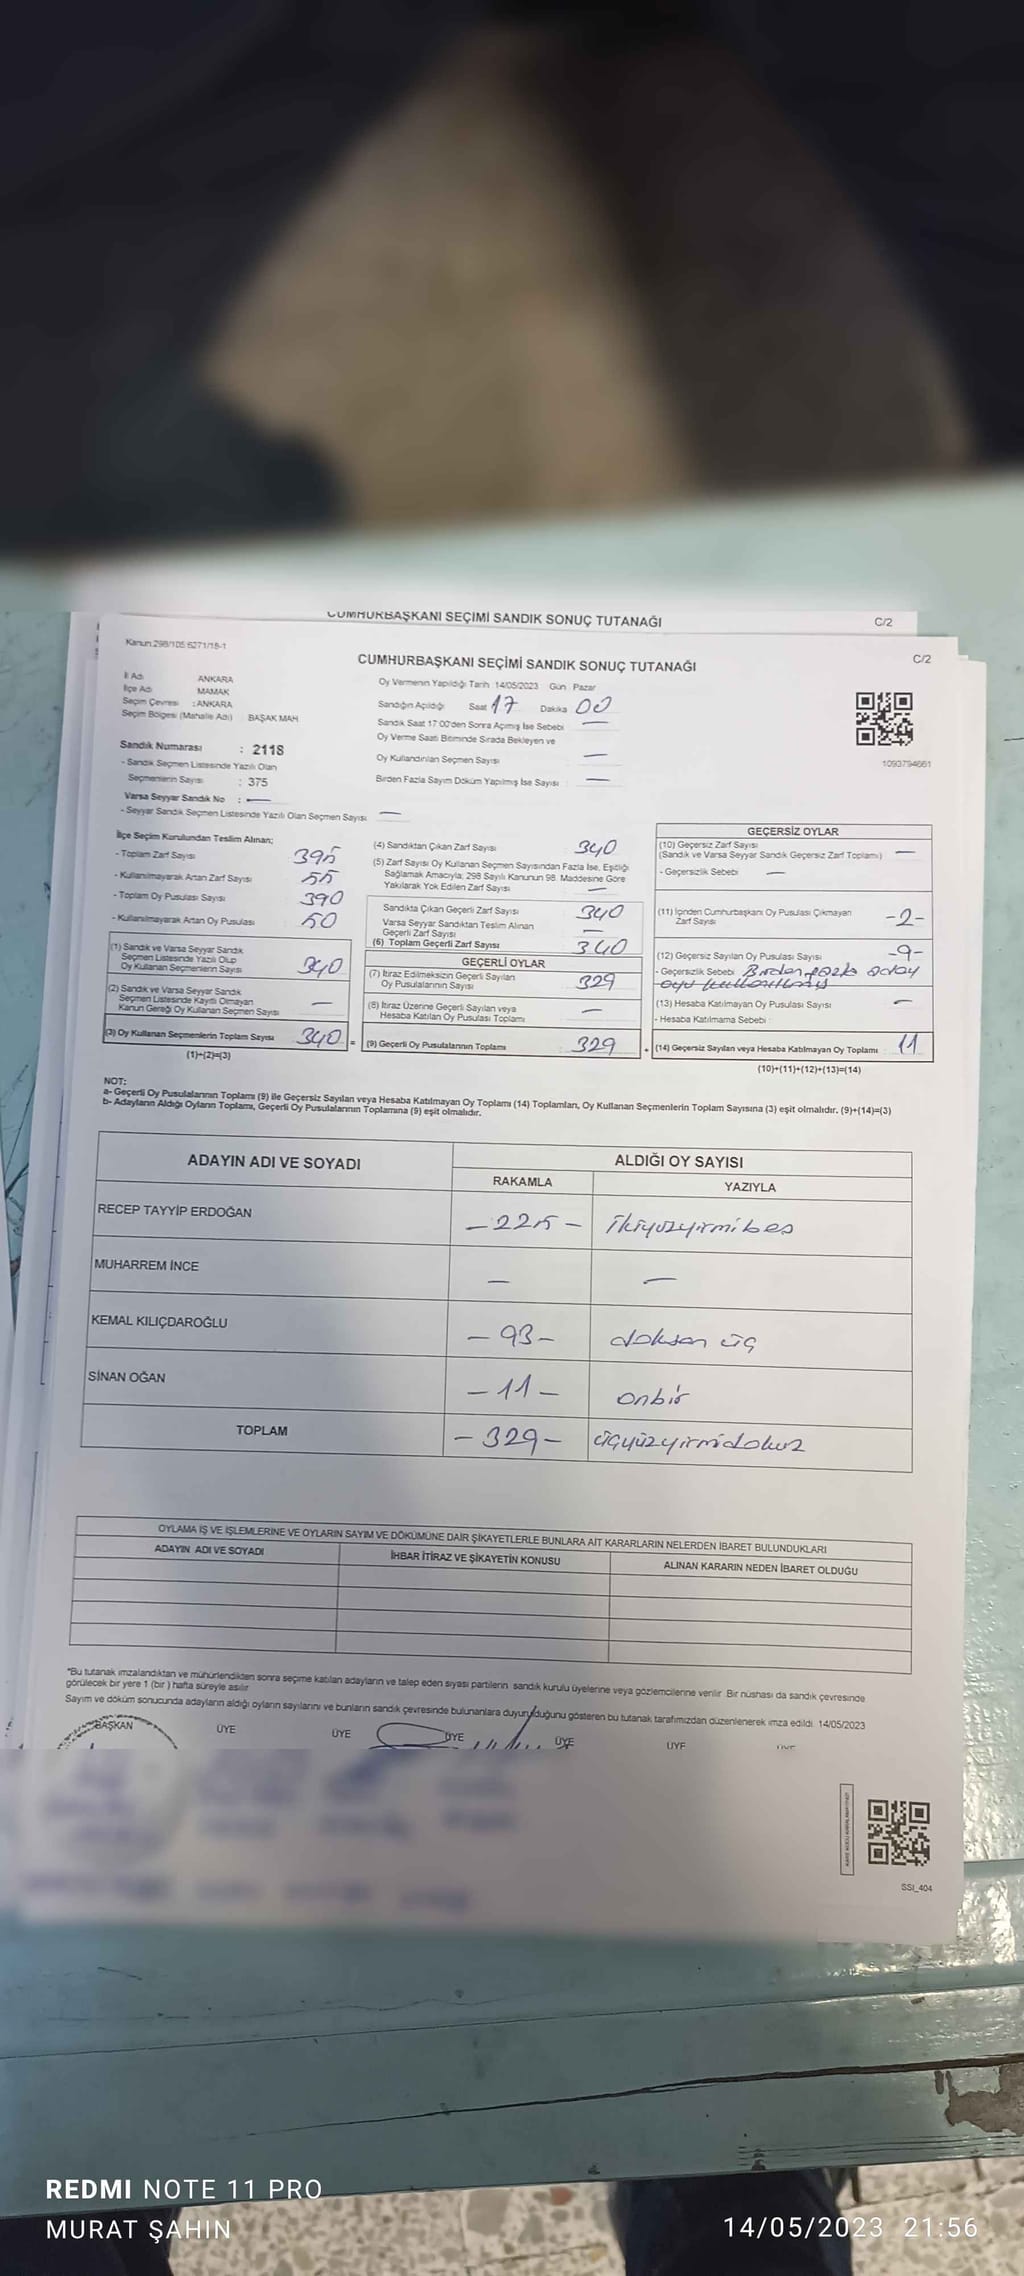 CUMHURBAŞKANI SEÇİMİ SANDIK SONUÇ TUTANAĞI
C/2
Kanun:298/105;6271/18-1
C/2
CUMHURBAŞKANI SEÇİMİ SANDIK SONUÇ TUTANAĞI
İl Adı ANKARA
İlçe Adı MAMAK
Seçim Çevresi : ANKARA
Seçim Bölgesi (Mahalle Adı) BAŞAK MAH
Sandık Numarası : 2118
- Sandık Seçmen Listesinde Yazılı Olan
Seçmenlerin Sayısı : 375
Varsa Seyyar Sandık No : —
- Seyyar Sandık Seçmen Listesinde Yazılı Olan Seçmen Sayısı —
Oy Vermenin Yapıldığı Tarih 14/05/2023 Gün Pazar
Sandığın Açıldığı Saat 17 Dakika 00
Sandık Saat 17:00'den Sonra Açılmış İse Sebebi —
Oy Verme Saati Bitiminde Sırada Bekleyen ve
Oy Kullandırılan Seçmen Sayısı —
Birden Fazla Sayım Döküm Yapılmış İse Sayısı —
1093794661
İlçe Seçim Kurulundan Teslim Alınan;
- Toplam Zarf Sayısı 395
- Kullanılmayarak Artan Zarf Sayısı 55
- Toplam Oy Pusulası Sayısı 390
- Kullanılmayarak Artan Oy Pusulası 50
(1) Sandık ve Varsa Seyyar Sandık
Seçmen Listesinde Yazılı Olup
Oy Kullanan Seçmenlerin Sayısı 340
(2) Sandık ve Varsa Seyyar Sandık
Seçmen Listesinde Kayıtlı Olmayan
Kanun Gereği Oy Kullanan Seçmen Sayısı —
(3) Oy Kullanan Seçmenlerin Toplam Sayısı 340 =
(1)+(2)=(3)
(4) Sandıktan Çıkan Zarf Sayısı 340
(5) Zarf Sayısı Oy Kullanan Seçmen Sayısından Fazla İse, Eşitliği
Sağlamak Amacıyla; 298 Sayılı Kanunun 98. Maddesine Göre
Yakılarak Yok Edilen Zarf Sayısı —
Sandıkta Çıkan Geçerli Zarf Sayısı 340
Varsa Seyyar Sandıktan Teslim Alınan
Geçerli Zarf Sayısı —
(6) Toplam Geçerli Zarf Sayısı 340
GEÇERLİ OYLAR
(7) İtiraz Edilmeksizin Geçerli Sayılan
Oy Pusulalarının Sayısı 329
(8) İtiraz Üzerine Geçerli Sayılan veya
Hesaba Katılan Oy Pusulası Toplamı —
(9) Geçerli Oy Pusulalarının Toplamı 329 +
GEÇERSİZ OYLAR
(10) Geçersiz Zarf Sayısı
(Sandık ve Varsa Seyyar Sandık Geçersiz Zarf Toplamı) —
- Geçersizlik Sebebi —
(11) İçinden Cumhurbaşkanı Oy Pusulası Çıkmayan
Zarf Sayısı -2-
(12) Geçersiz Sayılan Oy Pusulası Sayısı -9-
- Geçersizlik Sebebi Birden fazla aday
oyu kullanılmış
(13) Hesaba Katılmayan Oy Pusulası Sayısı —
- Hesaba Katılmama Sebebi :
(14) Geçersiz Sayılan veya Hesaba Katılmayan Oy Toplamı 11
(10)+(11)+(12)+(13)=(14)
NOT:
a- Geçerli Oy Pusulalarının Toplamı (9) ile Geçersiz Sayılan veya Hesaba Katılmayan Oy Toplamı (14) Toplamları, Oy Kullanan Seçmenlerin Toplam Sayısına (3) eşit olmalıdır. (9)+(14)=(3)
b- Adayların Aldığı Oyların Toplamı, Geçerli Oy Pusulalarının Toplamına (9) eşit olmalıdır.
ADAYIN ADI VE SOYADI
ALDIĞI OY SAYISI
RAKAMLA
YAZIYLA
RECEP TAYYİP ERDOĞAN -225- İkiyüzyirmibeş
MUHARREM İNCE — —
KEMAL KILIÇDAROĞLU -93- doksan üç
SİNAN OĞAN -11- onbir
TOPLAM -329- üçyüzyirmidokuz
OYLAMA İŞ VE İŞLEMLERİNE VE OYLARIN SAYIM VE DÖKÜMÜNE DAİR ŞİKAYETLERLE BUNLARA AİT KARARLARIN NELERDEN İBARET BULUNDUKLARI
ADAYIN ADI VE SOYADI
İHBAR İTİRAZ VE ŞİKAYETİN KONUSU
ALINAN KARARIN NEDEN İBARET OLDUĞU
*Bu tutanak imzalandıktan ve mühürlendikten sonra seçime katılan adayların ve talep eden siyasi partilerin sandık kurulu üyelerine veya gözlemcilerine verilir. Bir nüshası da sandık çevresinde
görülecek bir yere 1 (bir) hafta süreyle asılır
Sayım ve döküm sonucunda adayların aldığı oyların sayılarını ve bunların sandık çevresinde bulunanlara duyurulduğunu gösteren bu tutanak tarafımızdan düzenlenerek imza edildi. 14/05/2023
BAŞKAN ÜYE ÜYE ÜYE ÜYE ÜYE ÜYE
SSI_404
REDMI NOTE 11 PRO
MURAT ŞAHIN
14/05/2023 21:56